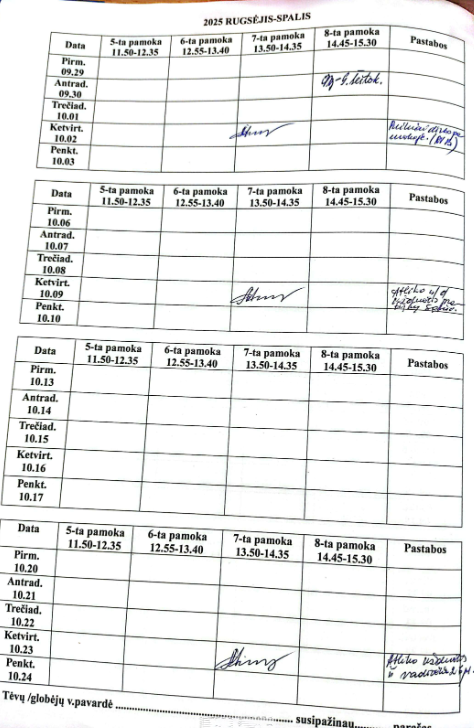 2025 RUGSĖJIS-SPALIS
Data 5-ta pamoka 6-ta pamoka 7-ta pamoka 8-ta pamoka Pastabos
11.50-12.35 12.55-13.40 13.50-14.35 14.45-15.30
Pirm.
09.29
Antrad.
09.30
Trečiad.
10.01
Ketvirt.
10.02
Penkt.
10.03
Data 5-ta pamoka 6-ta pamoka 7-ta pamoka 8-ta pamoka Pastabos
11.50-12.35 12.55-13.40 13.50-14.35 14.45-15.30
Pirm.
10.06
Antrad.
10.07
Trečiad.
10.08
Ketvirt.
10.09
Atliko
Penkt.
10.10
Data 5-ta pamoka 6-ta pamoka 7-ta pamoka 8-ta pamoka Pastabos
11.50-12.35 12.55-13.40 13.50-14.35 14.45-15.30
Pirm.
10.13
Antrad.
10.14
Trečiad.
10.15
Ketvirt.
10.16
Penkt.
10.17
Data 5-ta pamoka 6-ta pamoka 7-ta pamoka 8-ta pamoka Pastabos
11.50-12.35 12.55-13.40 13.50-14.35 14.45-15.30
Pirm.
10.20
Antrad.
10.21
Trečiad.
10.22
Ketvirt.
10.23
Atliko užduotis
Penkt.
10.24
Tėvų /globėjų v.pavardė ........ susipažinau........ parašas